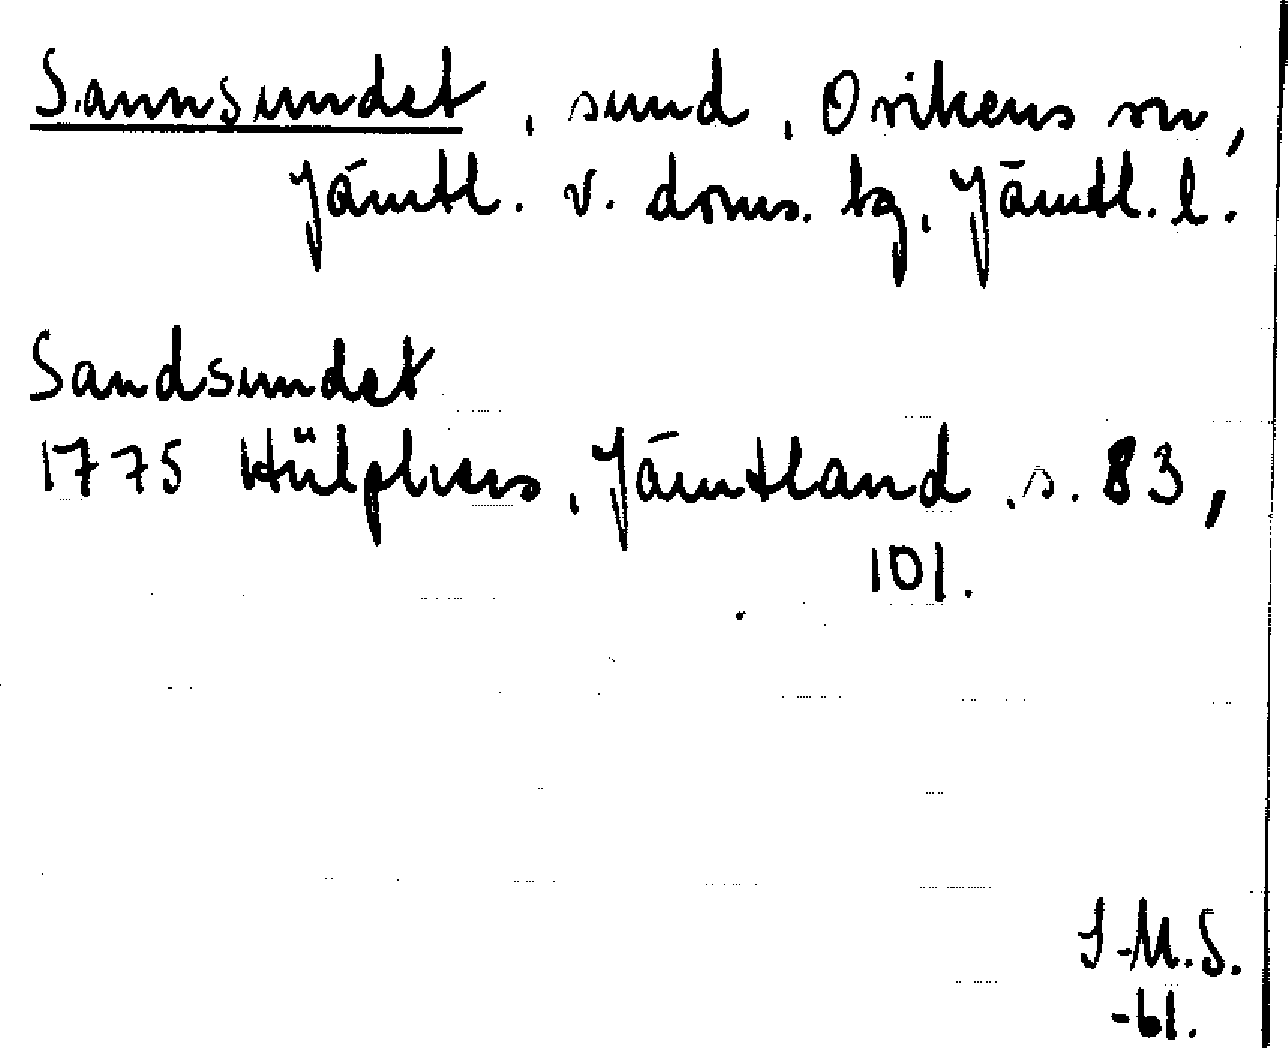 Sannsundet, sund, Ovikens sn,
Jämtl. v. doms. tg, Jämtl. l.
Sandsundet
1775 Hülphers, Jämtland, s. 83,
101.
I-M.S.
-61.